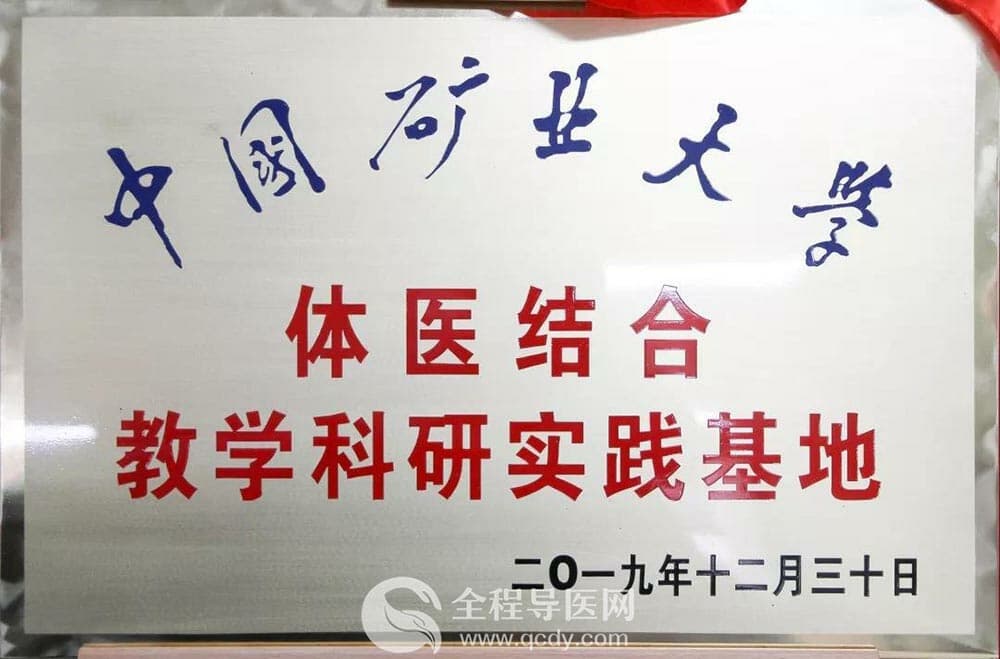 中国矿业大学
体医结合
教学科研实践基地
二O一九年十二月三十日
全程导医网
www.qcdy.com